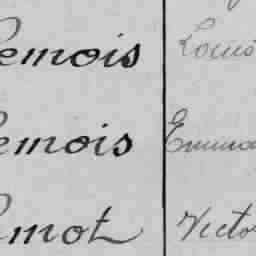 emois Louis
emois Emma
mot Victo